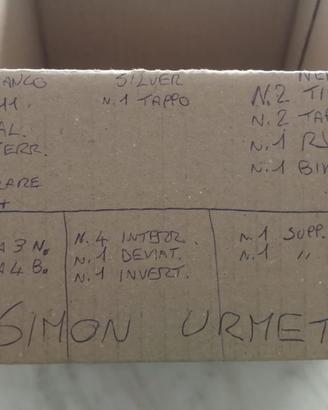 ANCO
11.
AL.
TERR.
ARE
+
SILVER
N.1 TAPPO
NE
N.2 TI
N.2 TAP
N.1 RU
N.1 BIP
A 3 N.
A 4 B.
N. 4 INTERR.
N. 1 DEVIAT.
N. 1 INVERT.
N. 1 SUPP.
N. 1 "
SIMON URMET